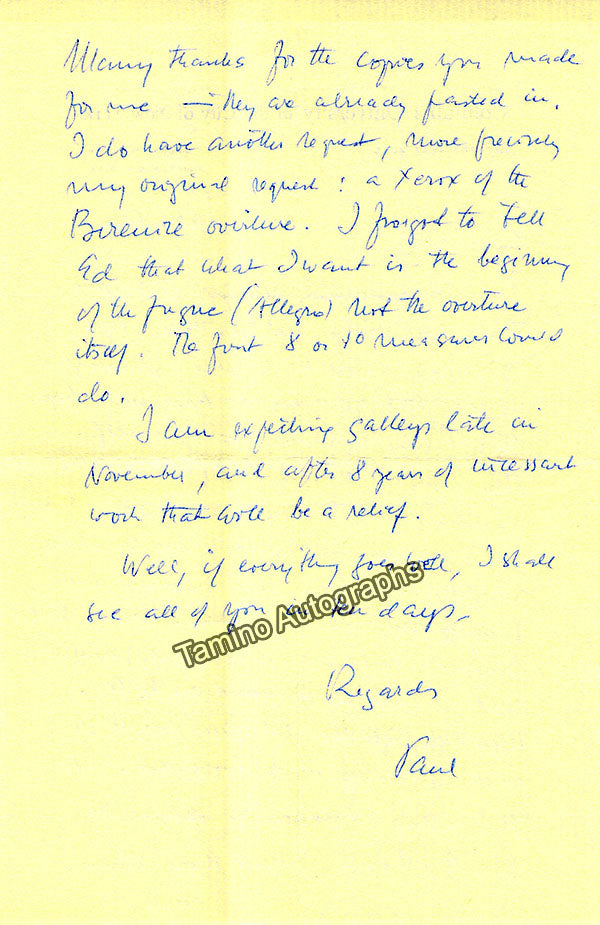 Many thanks for the copies you made
for me — they are already pasted in.
I do have another request, more precisely
my original request: a Xerox of the
Berenice overture. I forgot to tell
Ed that what I want is the beginning
of the fugue (Allegro) not the overture
itself. The first 8 or 10 measures would
do.
I am expecting galleys late in
November, and after 8 years of incessant
work that will be a relief.
Well, if everything goes well, I shall
see all of you in ten days.
Tamino Autographs
Regards
Paul